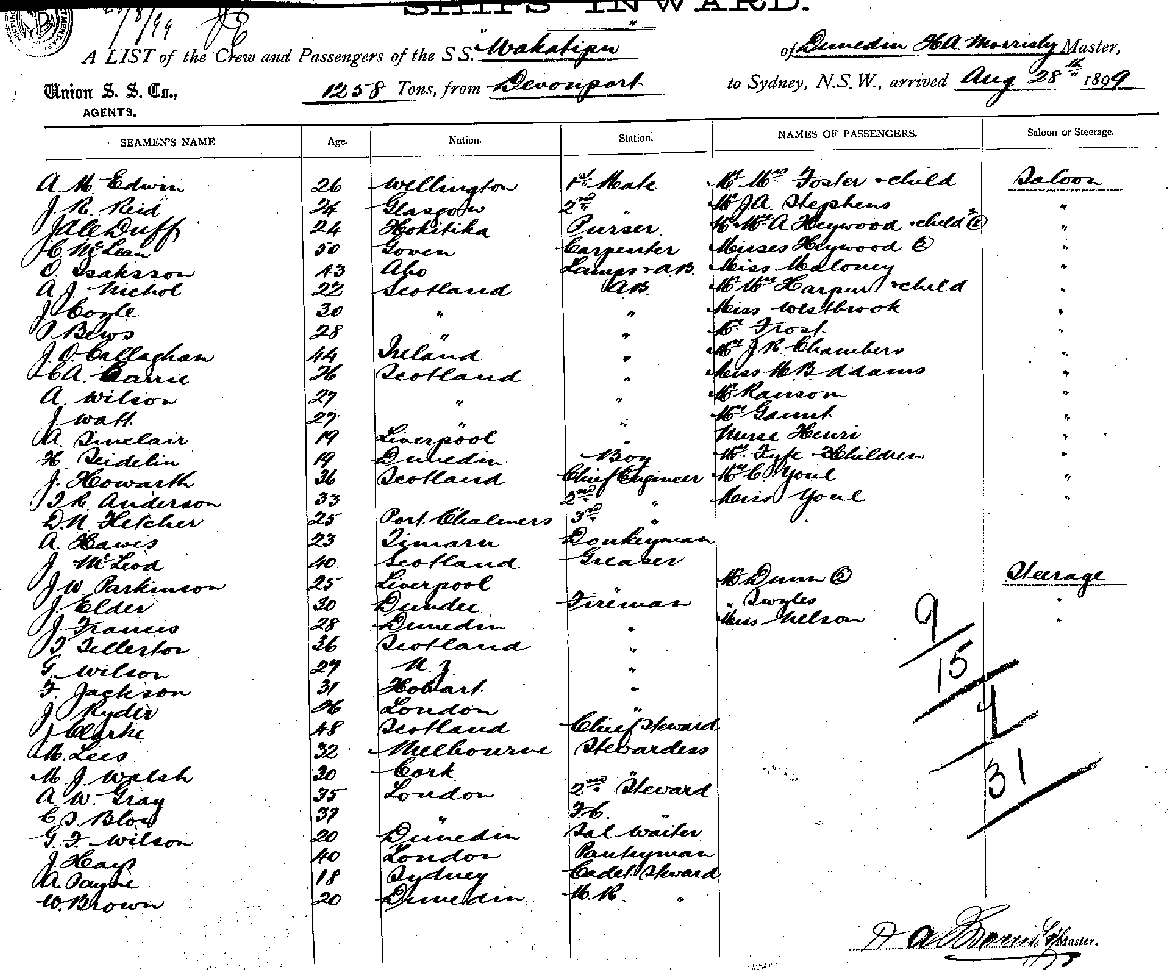 SHIPS INWARD.
28/8/99
A LIST of the Crew and Passengers of the S.S. "Wakatipu" of Dunedin H.A. Morrisby Master,
Union S. S. Co., AGENTS. 1258 Tons, from Devonport to Sydney, N.S.W., arrived Aug 28th 1899
SEAMEN'S NAME Age. Nation. Station. NAMES OF PASSENGERS. Saloon or Steerage.
A McEdwin 26 Wellington 1st Mate Mr Mrs Foster + child Saloon
J. R. Reid 24 Glasgow 2nd " Mr J.A. Stephens "
Duff 24 Hokitika Purser Mr Mrs A Heywood + child "
C McLean 50 Goven Carpenter Misses Heywood "
O. Isaksson 43 Abo Lamps + A.B. Miss Maloney "
A J Nichol 22 Scotland A.B. Mr Mrs Harper + child "
J Coyle 30 " " Miss Westbrook "
P Bews 28 " " Mr Frost "
J. O'Callaghan 44 Ireland " Mr J R Chambers "
C A. Carrie 26 Scotland " Miss "
A. Wilson 27 " " Mr Ranson "
J Watt 27 " " Mr Gaunt "
A Sinclair 19 Liverpool " Nurse Henri "
H. Seidelin 19 Dunedin Boy Mrs Fyfe + Children "
J. Howarth 36 Scotland Chief Engineer Mr C Youl "
Anderson 33 " 2nd " Miss Youl "
D. N. Fletcher 25 Port Chalmers 3rd "
A. Hawis 23 Timaru Donkeyman
J McLeod 40 Scotland Greaser
J W Parkinson 25 Liverpool " Mr Dunn Steerage
J Elder 30 Dundee Fireman " Swyles "
J. Francis 28 Dunedin " Miss Nelson "
Tillertor 36 Scotland "
G Wilson 27 N Z "
F. Jackson 31 Hobart "
J Ryder 26 London "
J Clarke 48 Scotland Chief Steward
M. Lees 32 Melbourne Stewardess
M J Walsh 30 Cork "
A W Gray 35 London 2nd Steward
Blow 37 " F.C.
G. F. Wilson 20 Dunedin Sal Waiter
J Hays 40 London Pantryman
A Payne 18 Sydney Cadet Steward
W. Brown 20 Dunedin M.R. "
9
15
4
31
Master.